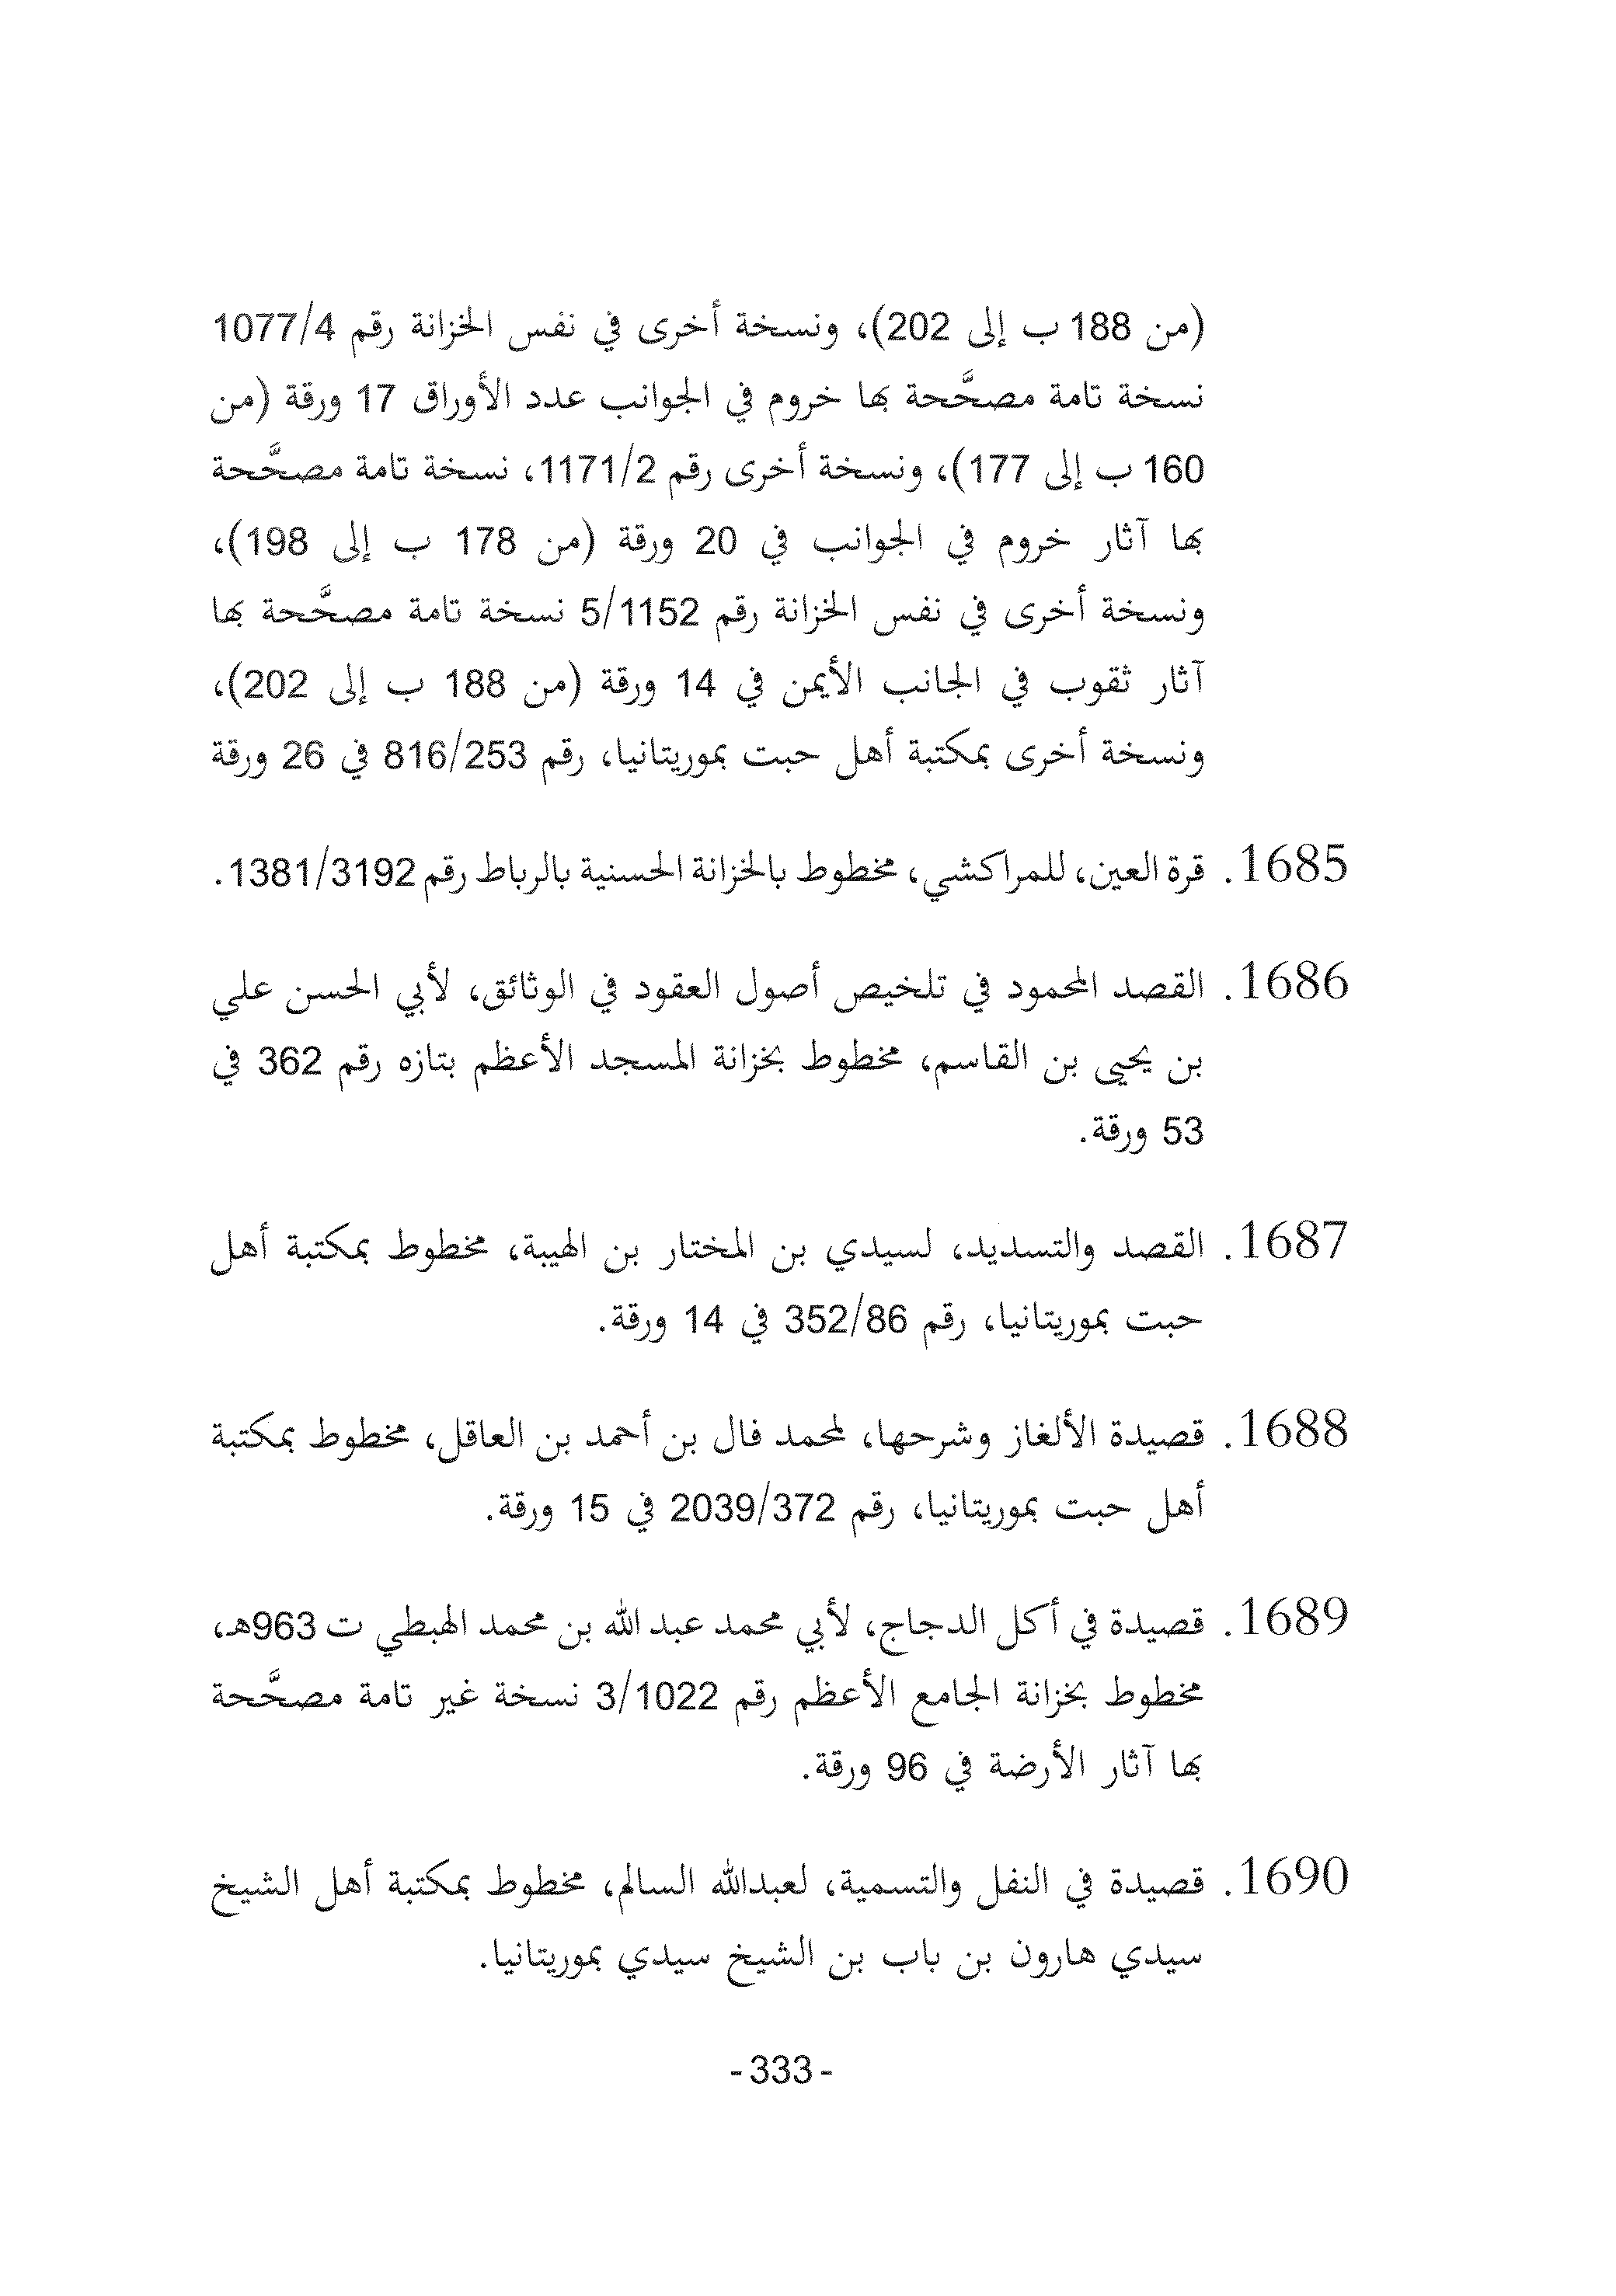 (من 188 ب إلى 202)، ونسخة أخرى في نفس الخزانة رقم 1077/4
نسخة تامة مصحَّحة بها خروم في الجوانب عدد الأوراق 17 ورقة (من
160 ب إلى 177)، ونسخة أخرى رقم 1171/2، نسخة تامة مصحَّحة
بها آثار خروم في الجوانب في 20 ورقة (من 178 ب إلى 198)،
ونسخة أخرى في نفس الخزانة رقم 5/1152 نسخة تامة مصحَّحة بها
آثار ثقوب في الجانب الأيمن في 14 ورقة (من 188 ب إلى 202)،
ونسخة أخرى بمكتبة أهل حبت بموريتانيا، رقم 816/253 في 26 ورقة
1685. قرة العين، للمراكشي، مخطوط بالخزانة الحسنية بالرباط رقم 1381/3192.
1686. القصد المحمود في تلخيص أصول العقود في الوثائق، لأبي الحسن علي
بن يحيى بن القاسم، مخطوط بخزانة المسجد الأعظم بتازه رقم 362 في
53 ورقة.
1687. القصد والتسديد، لسيدي بن المختار بن الهيبة، مخطوط بمكتبة أهل
حبت بموريتانيا، رقم 352/86 في 14 ورقة.
1688. قصيدة الألغاز وشرحها، لمحمد فال بن أحمد بن العاقل، مخطوط بمكتبة
أهل حبت بموريتانيا، رقم 2039/372 في 15 ورقة.
1689. قصيدة في أكل الدجاج، لأبي محمد عبد الله بن محمد الهبطي ت 963هـ،
مخطوط بخزانة الجامع الأعظم رقم 3/1022 نسخة غير تامة مصحَّحة
بها آثار الأرضة في 96 ورقة.
1690. قصيدة في النفل والتسمية، لعبدالله السالم، مخطوط بمكتبة أهل الشيخ
سيدي هارون بن باب بن الشيخ سيدي بموريتانيا.
-333-